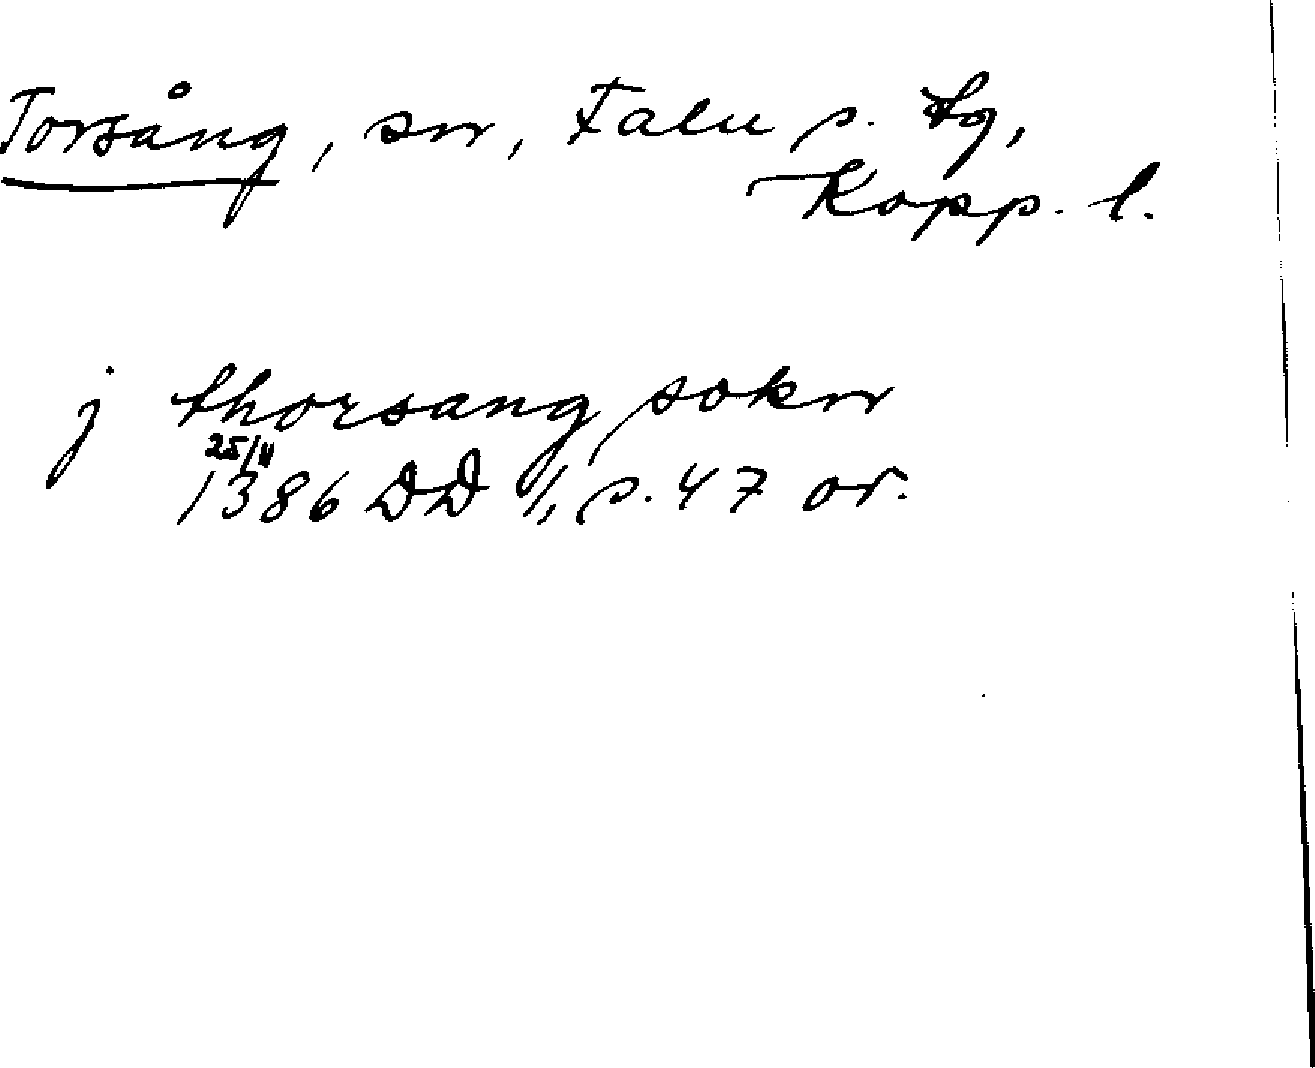 Torsång, sn, Falu s. tg,
Kopp. l.
j thorsang sokn
25/11
1386 DD 1/1, s. 47 or.